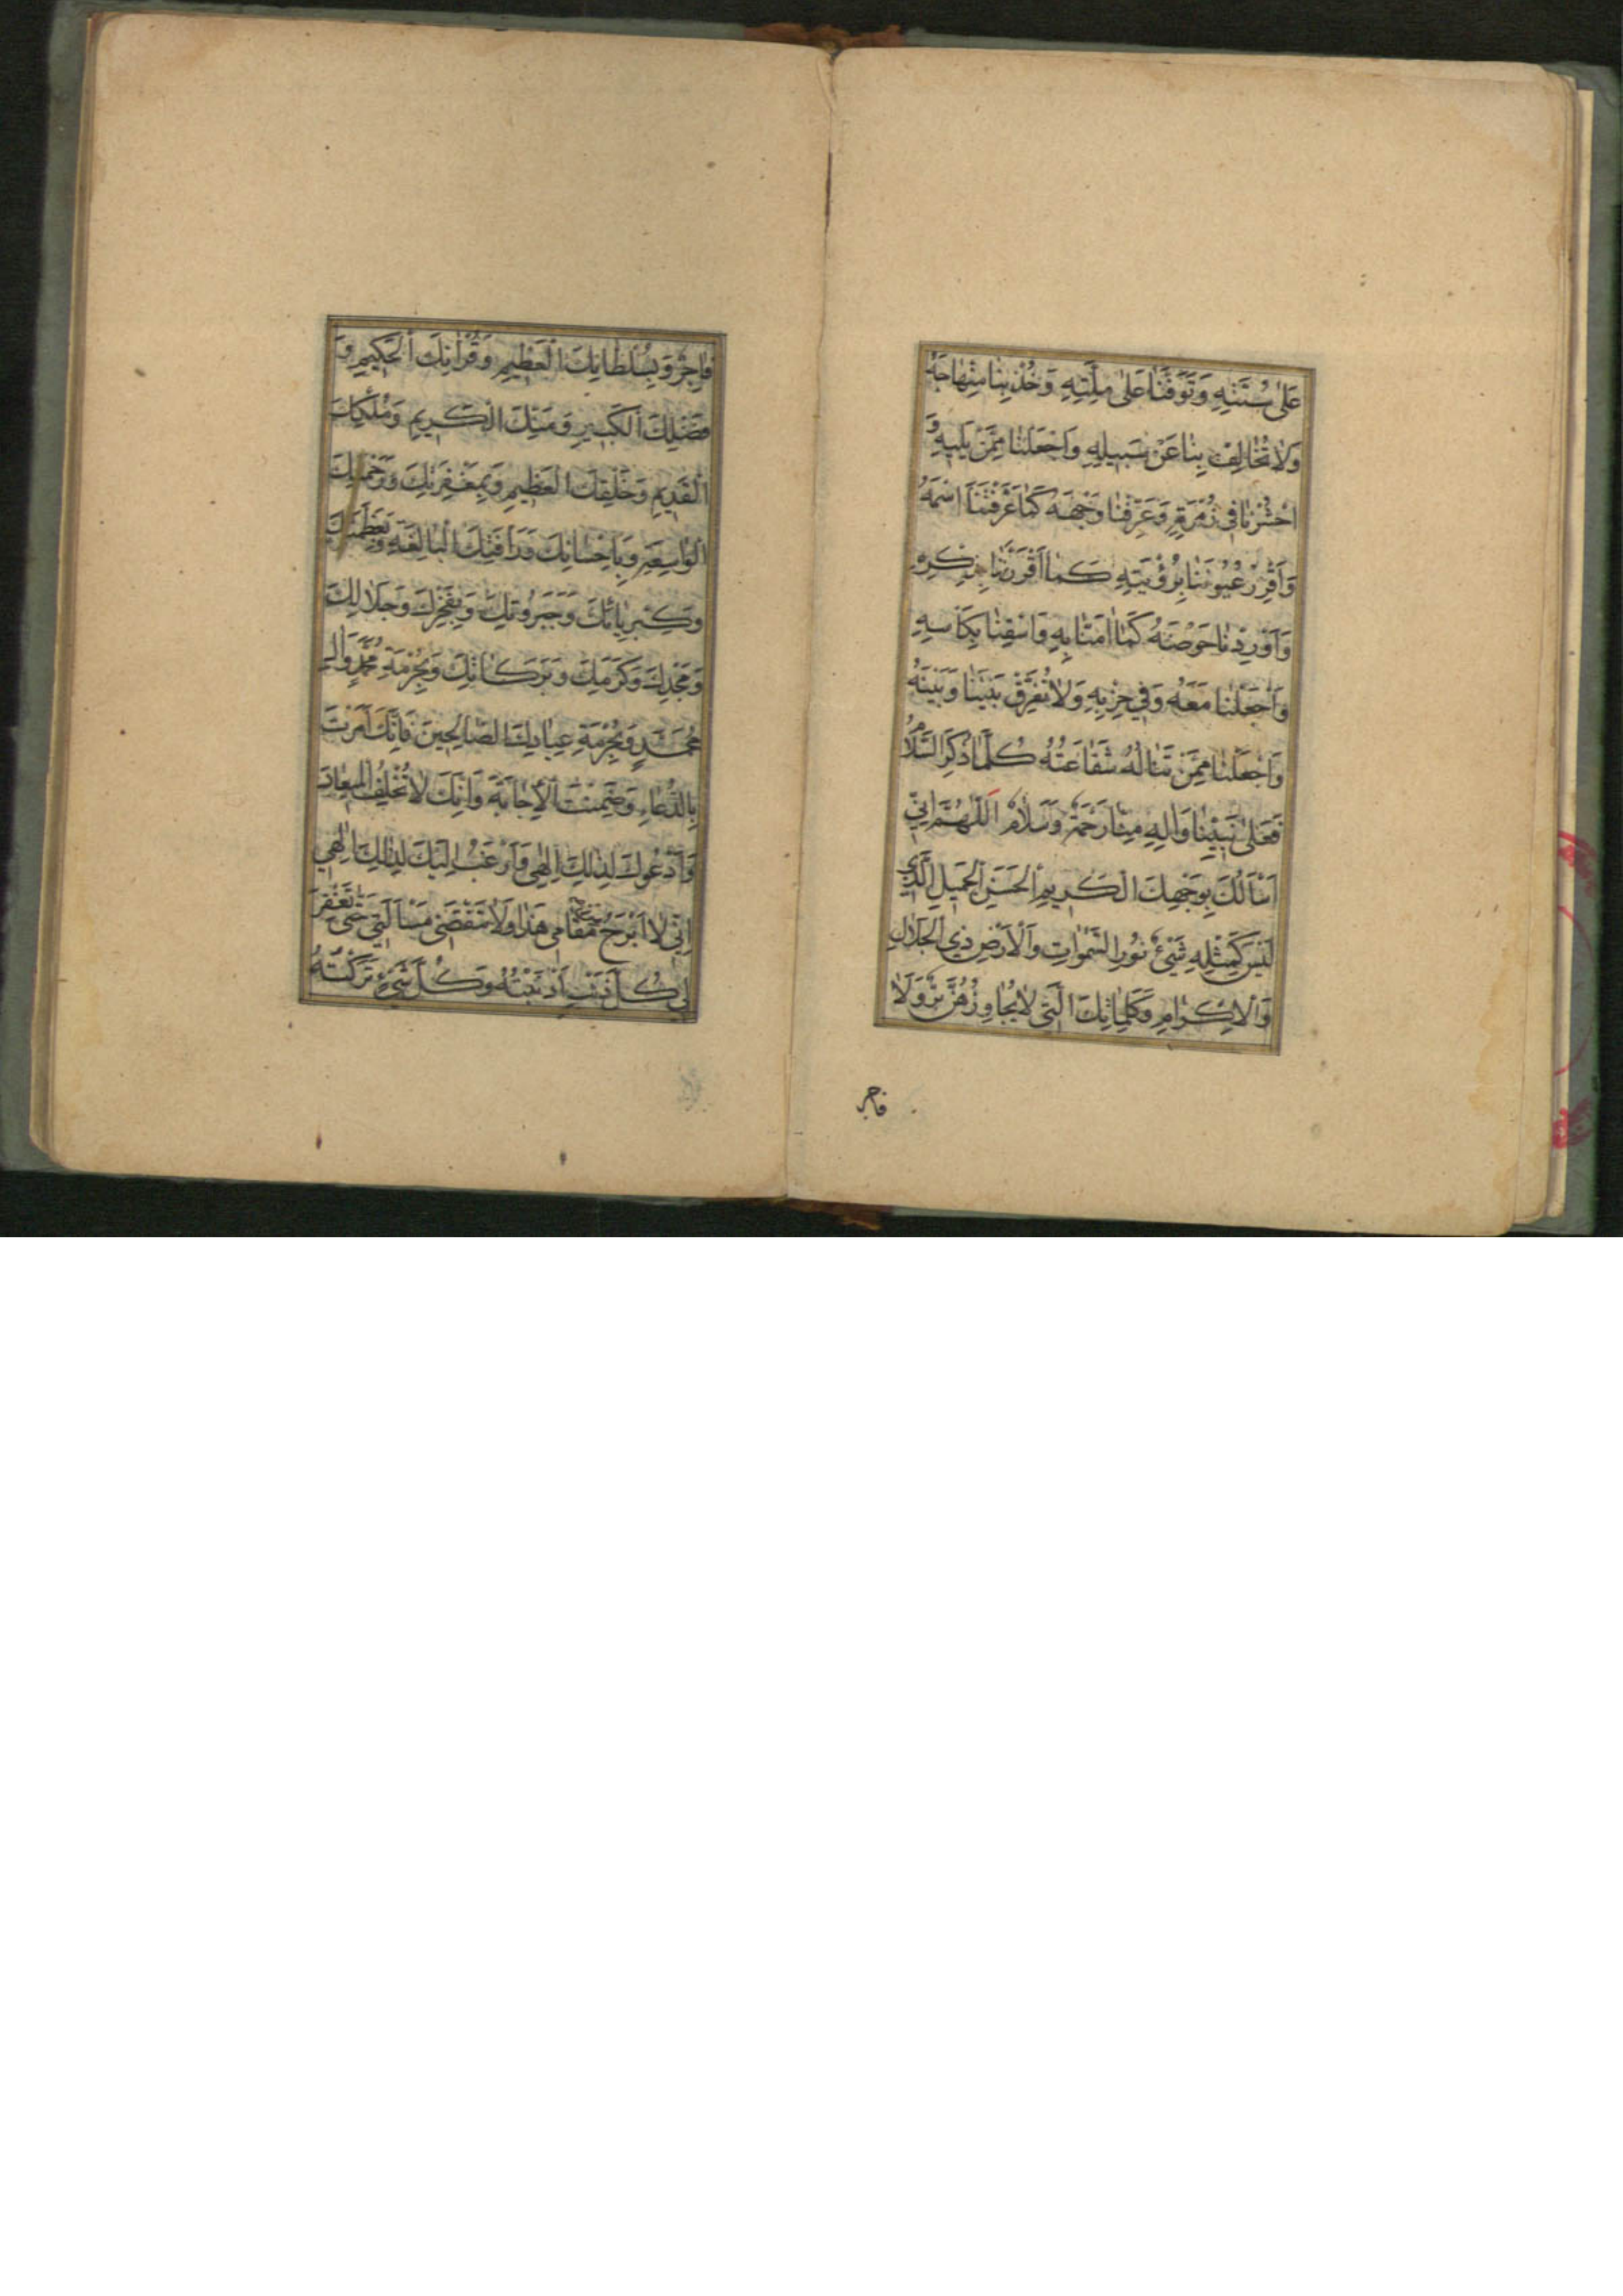 عَلٰى سُنَّتِهِ وَتَوَفَّنٰا عَلٰى مِلَّتِهِ وَخُذْ بِنٰا مِنْهٰاجَهُ
وَلاٰ تُخٰالِفْ بِنٰا عَنْ سَبِيلِهِ وَاجْعَلْنٰا مِمَّنْ يَلِيهِ وَ
احْشُرْنٰا فِي زُمْرَتِهِ وَعَرِّفْنٰا وَجْهَهُ كَمٰا عَرَّفْتَنَا اسْمَهُ
وَاَقْرِرْ عُيُونَنٰا بِرُؤْيَتِهِ كَمٰا اَقْرَرْتَنٰا بِذِكْرِهِ
وَاَوْرِدْنٰا حَوْضَهُ كَمٰا اٰمَنّٰا بِهِ وَاسْقِنٰا بِكَاْسِهِ
وَاجْعَلْنٰا مَعَهُ وَفِي حِزْبِهِ وَلاٰ تُفَرِّقْ بَيْنَنٰا وَبَيْنَهُ
وَاجْعَلْنٰا مِمَّنْ تَنٰالُهُ شَفٰاعَتُهُ كُلَّمٰا ذُكِرَ السَّلاٰمُ
فَعَلٰى نَبِيِّنٰا وَاٰلِهِ مِنّٰا رَحْمَةٌ وَسَلاٰمٌ اَللّٰهُمَّ اِنِّي
اَسْاَلُكَ بِوَجْهِكَ الْكَرِيمِ الْحَسَنِ الْجَمِيلِ الَّذِي
لَيْسَ كَمِثْلِهِ شَيْءٌ نُورِ السَّمٰوٰاتِ وَالْاَرْضِ ذِي الْجَلاٰلِ
وَالْاِكْرٰامِ وَكَلِمٰاتِكَ الَّتِي لاٰ يُجٰاوِزُهُنَّ بَرٌّ وَلاٰ
فاجر
فٰاجِرٌ وَبِسُلْطٰانِكَ الْعَظِيمِ وَقُرْاٰنِكَ الْحَكِيمِ وَ
فَضْلِكَ الْكَبِيرِ وَمَنِّكَ الْكَرِيمِ وَمُلْكِكَ
الْقَدِيمِ وَخَلْقِكَ الْعَظِيمِ وَبِمَغْفِرَتِكَ وَرَحْمَتِكَ
الْوٰاسِعَةِ وَبِاِحْسٰانِكَ وَرَأْفَتِكَ الْبٰالِغَةِ وَبِعَظَمَتِكَ
وَكِبْرِيٰائِكَ وَجَبَرُوتِكَ وَبِفَخْرِكَ وَجَلاٰلِكَ
وَمَجْدِكَ وَكَرَمِكَ وَبَرَكٰاتِكَ وَبِحُرْمَةِ مُحَمَّدٍ وَاٰلِ
مُحَمَّدٍ وَبِحُرْمَةِ عِبٰادِكَ الصّٰالِحِينَ فَاِنَّكَ اَمَرْتَ
بِالدُّعٰاءِ وَضَمِنْتَ الْاِجٰابَةَ وَاِنَّكَ لاٰ تُخْلِفُ الْمِيعٰادَ
وَاَدْعُوكَ لِذٰلِكَ اِلٰهِي وَاَرْغَبُ اِلَيْكَ لِذٰلِكَ اِلٰهِي
اِنِّي لاٰ اَبْرَحُ مَقٰامِي هَذٰا وَلاٰ تَنْقَضِي مَسْاَلَتِي حَتّٰى تَغْفِرَ
لِي كُلَّ ذَنْبٍ اَذْنَبْتُهُ وَكُلَّ شَيْءٍ تَرَكْتُهُ